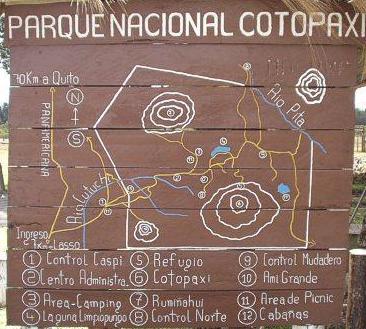 PARQUE NACIONAL COTOPAXI
70Km a Quito
N
S
PANAMERICANA
Rio Pita
Rio Cutuchi
Ingreso
1Km-Lasso
1 Control Caspi
2 Centro Administra.
3 Area-Camping
4 Laguna Limpiopungo
5 Refugio
6 Cotopaxi
7 Rumiñahui
8 Control Norte
9 Control Mudadero
10 Ami Grande
11 Area de Picnic
12 Cabañas